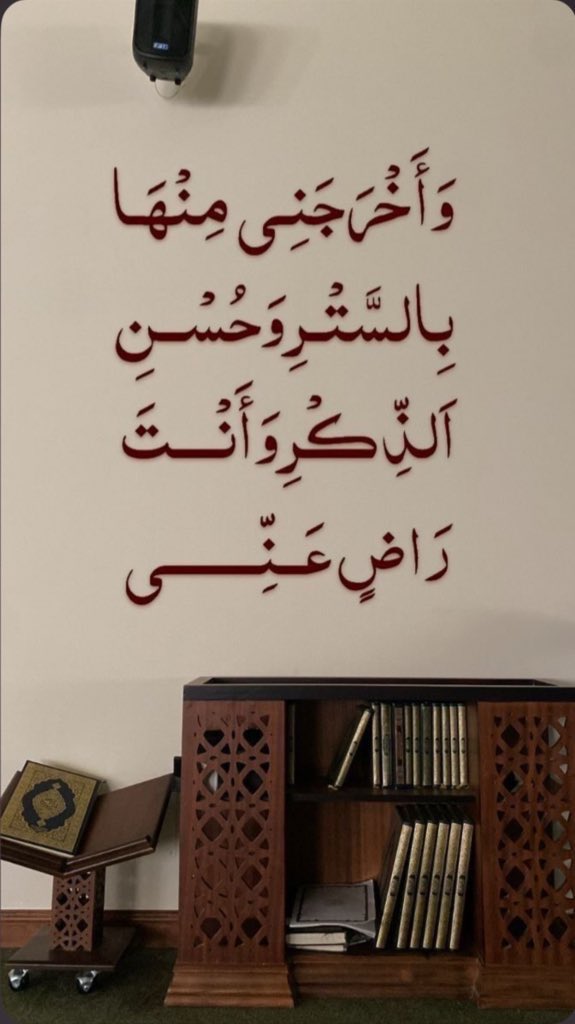 وَأَخْرَجَنِي مِنْهَا
بِالسَّتْرِ وَحُسْنِ
اَلذِّكْرِ وَأَنْتَ
رَاضٍ عَنِّي